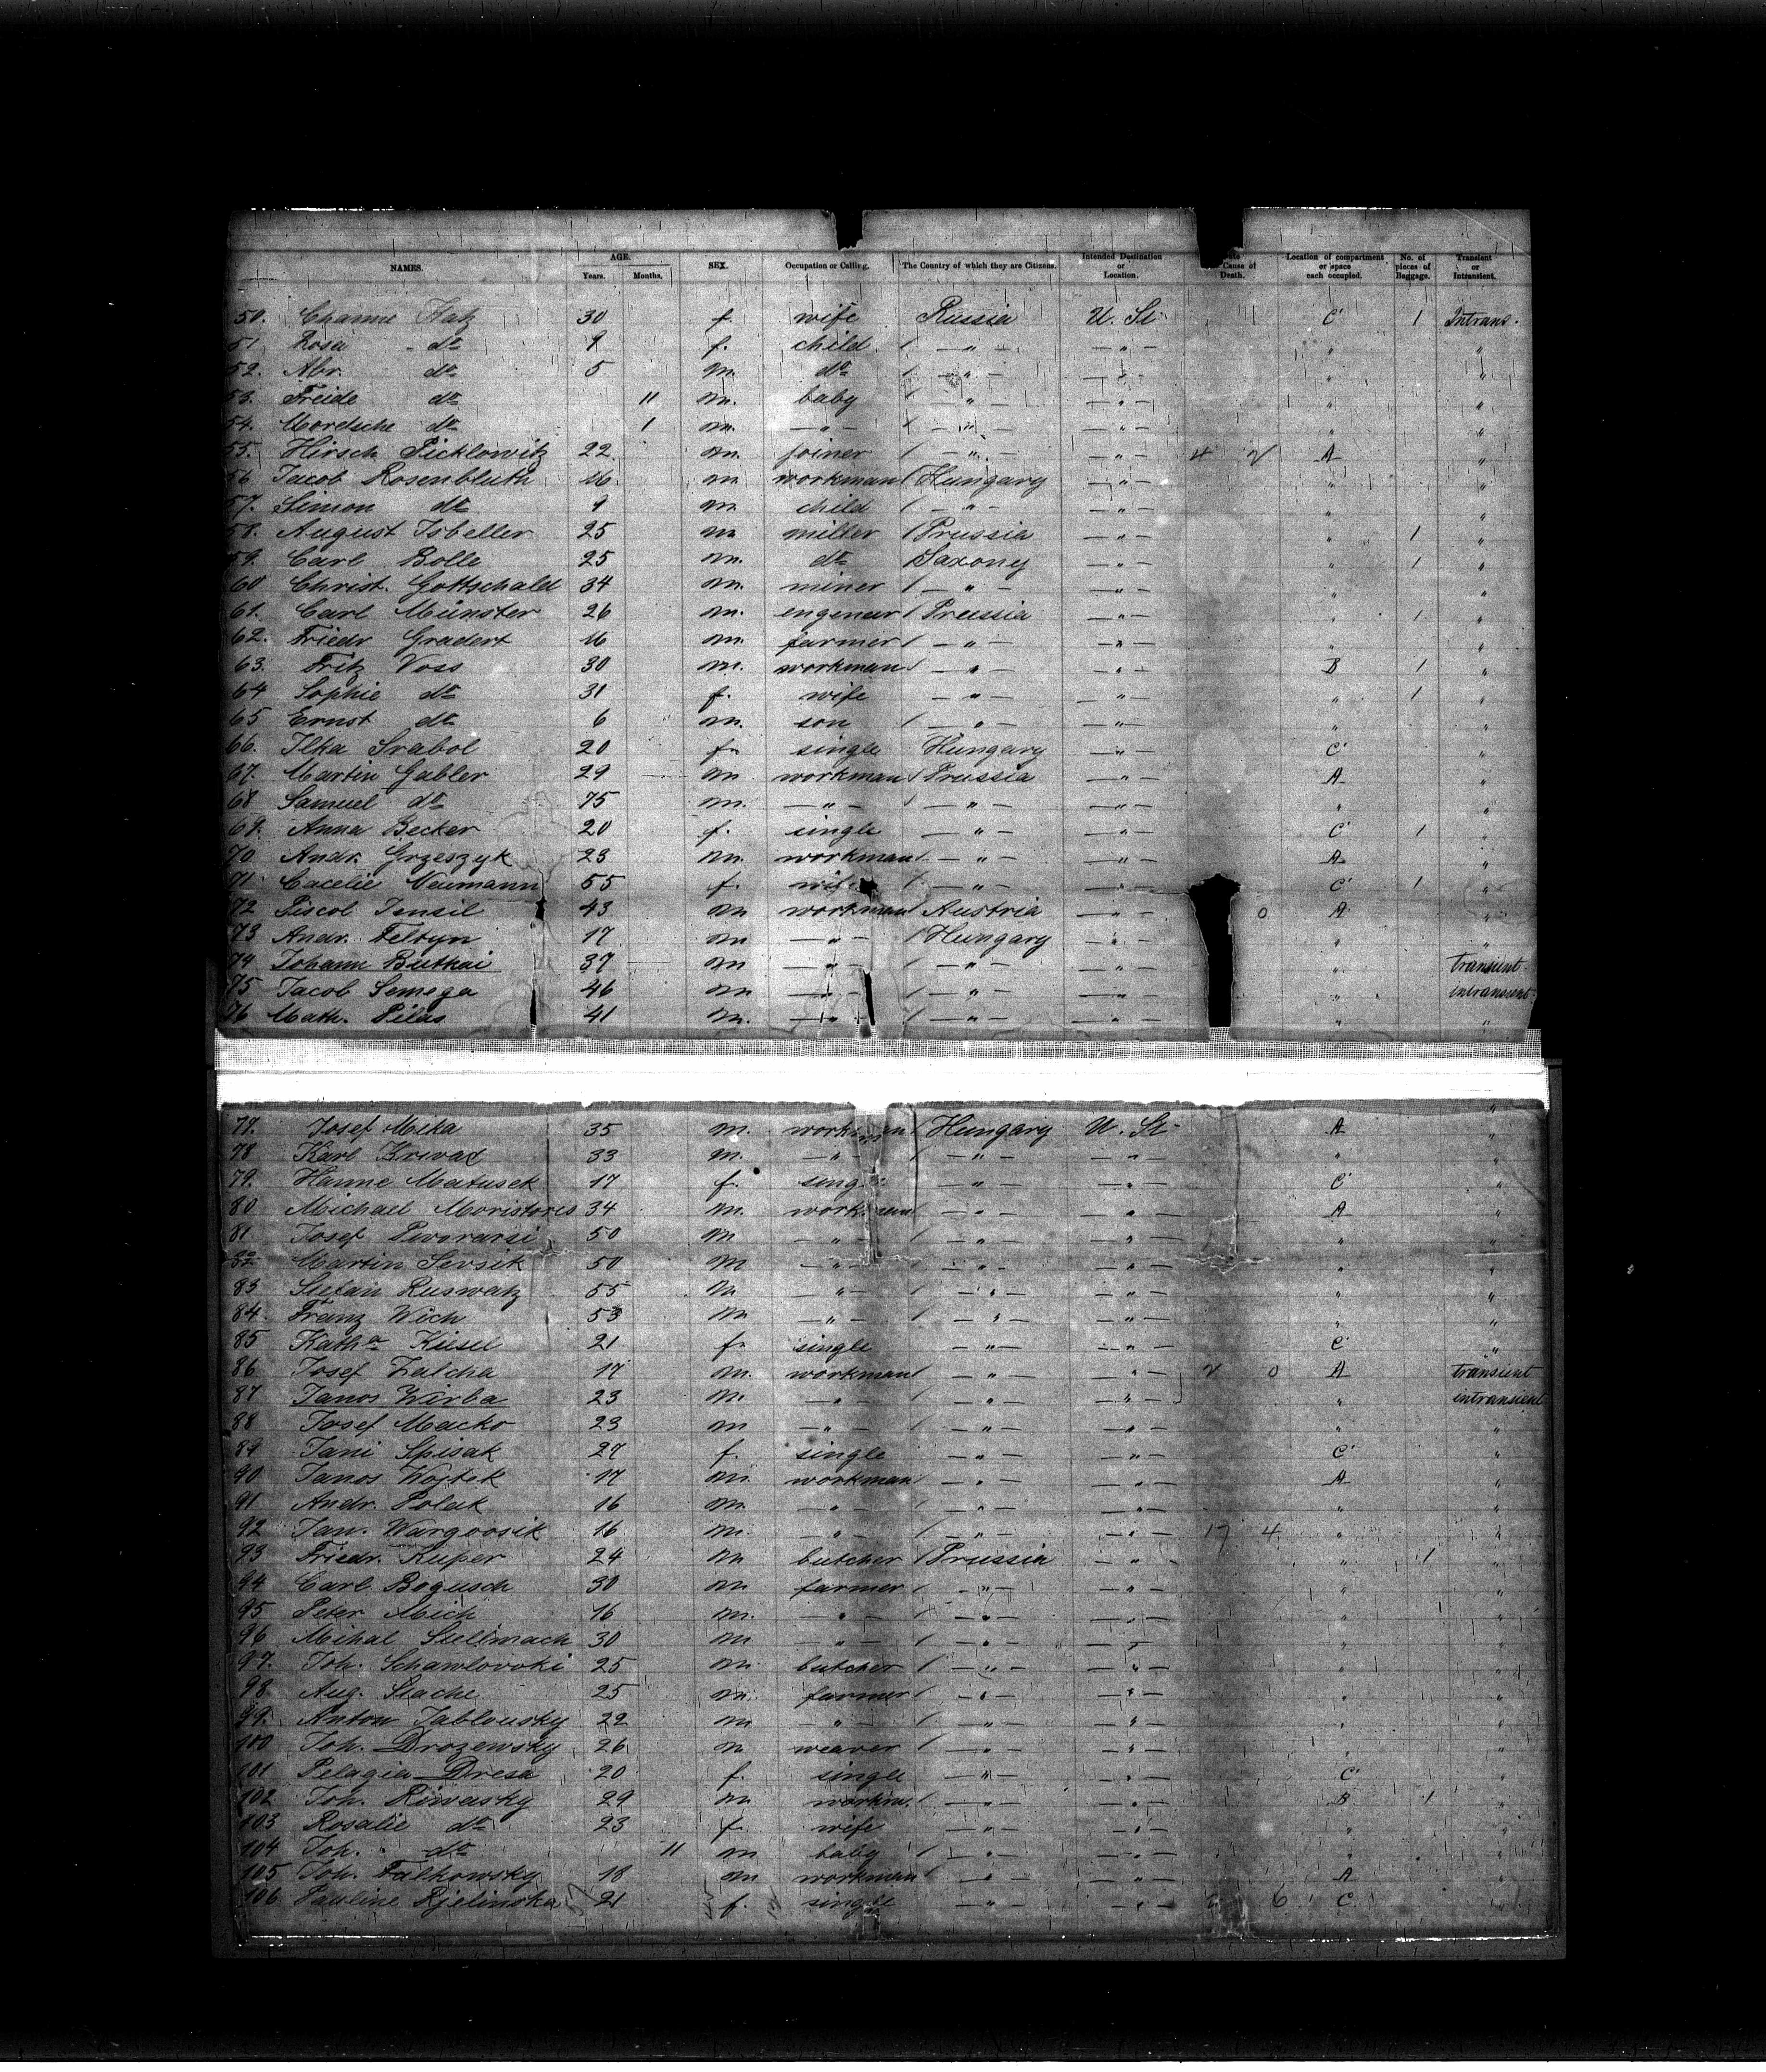 NAMES. AGE. Years. Months. SEX. Occupation or Calling. The Country of which they are Citizens. Intended Destination or Location. Cause of Death. Location of compartment or space each occupied. No. of pieces of Baggage. Transient or Intransient.
50. Channe Katz 30 f. wife Russia U. St. C 1 Intrans.
51 Rosa do 9 f. child / — " — — " — " "
52. Abr. do 5 m. do / — " — — " — " "
53. Freide do 11 m. baby / — " — — " — " "
54. Mordsche do 1 m. — " — — " — — " — " "
55. Hirsch Picklowitz 22 m. joiner / — " — — " — 4 2 A "
56 Jacob Rosenbluth 16 m workman / Hungary — " — " "
57. Simon do 9 m. child / — " — — " — " "
58. August Isbeller 25 m miller / Prussia — " — " 1 "
59. Carl Bolle 25 m. do Saxony — " — " 1 "
60 Christ. Gottschald 34 m. miner / — " — — " — " "
61. Carl Münster 26 m. engeneur / Prussia — " — " 1 "
62. Friedr Gradert 16 m. farmer / — " — — " — " "
63. Fritz Voss 30 m. workman / — " — — " — B 1 "
64 Sophie do 31 f. wife — " — — " — " 1 "
65 Ernst do 6 m. son / — " — — " — " "
66. Ilka Srabol 20 f. single Hungary — " — C "
67. Martin Gabler 29 m workman / Prussia — " — A "
68 Samuel do 75 m. — " — / — " — — " — " "
69. Anna Becker 20 f. single — " — — " — C 1 "
70 Andr. Grzeszyk 23 m. workman / — " — — " — A "
71 Cacelie Neumann 55 f. wife / — " — — " — C 1 "
72 43 m workman Austria — " — 0 A "
73 Andr. Feltyn 17 m — " — / Hungary — " — " "
74 Johann Buthai 37 m — " — / — " — — " — " transient
75 Jacob Semega 46 m — " — / — " — — " — " intransient
76 Math. Pilas 41 m. — " — / — " — — " — " "
77. Josef Mika 35 m. workman / Hungary U. St. A "
78 Karl Krivad 33 m. — " — / — " — — " — " "
79. Hanne Matusek 17 f. single — " — — " — C "
80 Michael Moristores 34 m. workman / — " — — " — A "
81 Josef 50 m — " — / — " — — " — " "
82 Martin Sevsik 50 m — " — — " — — " — " "
83 Stefan Ruswatz 55 m — " — / — " — — " — " "
84. Franz Wich 53 m. — " — / — " — — " — " "
85 Katha Kiesel 21 f. single — " — — " — C "
86 Josef Zalcha 17 m. workman / — " — — " — 2 0 A transient
87 Janos Wirba 23 m. — " — / — " — — " — " intransient
88 Josef Macko 23 m — " — / — " — — " — " "
89 Jani Spisak 27 f. single — " — — " — C "
90 Janos Wojtek 17 m. workman / — " — — " — A "
91 Andr. Polak 16 m. — " — / — " — — " — " "
92 Jan. Wargoosik 16 m. — " — / — " — — " — 17 4 " "
93 Friedr. Kuper 24 m butcher / Prussia — " — " 1 "
94 Carl Bogusch 30 m. farmer / — " — — " — " "
95 Peter Mich 16 m. — " — / — " — — " — " "
96 Mihal Stellmach 30 m — " — / — " — — " — " "
97. Joh. Schawlovoki 25 m. butcher / — " — — " — " "
98. Aug. Stache 25 m. farmer / — " — — " — " "
99. Anton Jablousky 22 m — " — / — " — — " — " "
100 Joh. Drozewsky 26 m weaver / — " — — " — " "
101 Pelagia Dresa 20 f. single — " — — " — C "
102 Joh. Riwaisky 29 m workm. / — " — — " — B 1 "
103 Rosalie do 23 f wife — " — — " — " "
104 Joh. do 11 m baby / — " — — " — " "
105 Joh. Falkowsky 18 m workman / — " — — " — A "
106 Pauline Rjelinska 21 f. single — " — — " — 6 C "